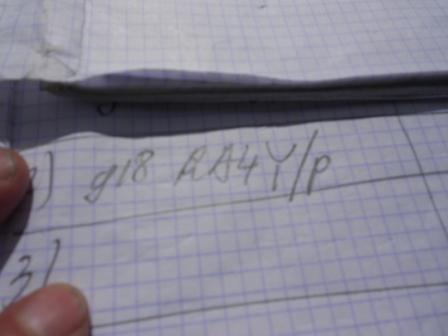 2) g18 AA4Y/p
3)